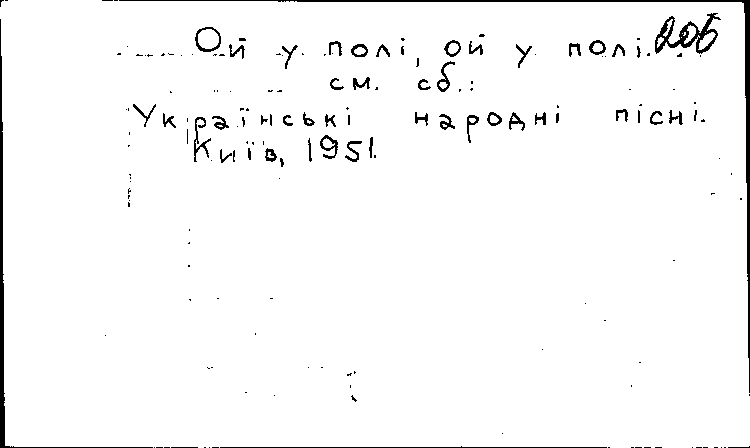 Ой у полі, ой у полі. 206
см. сб.:
Українські народні пісні.
Київ, 1951.